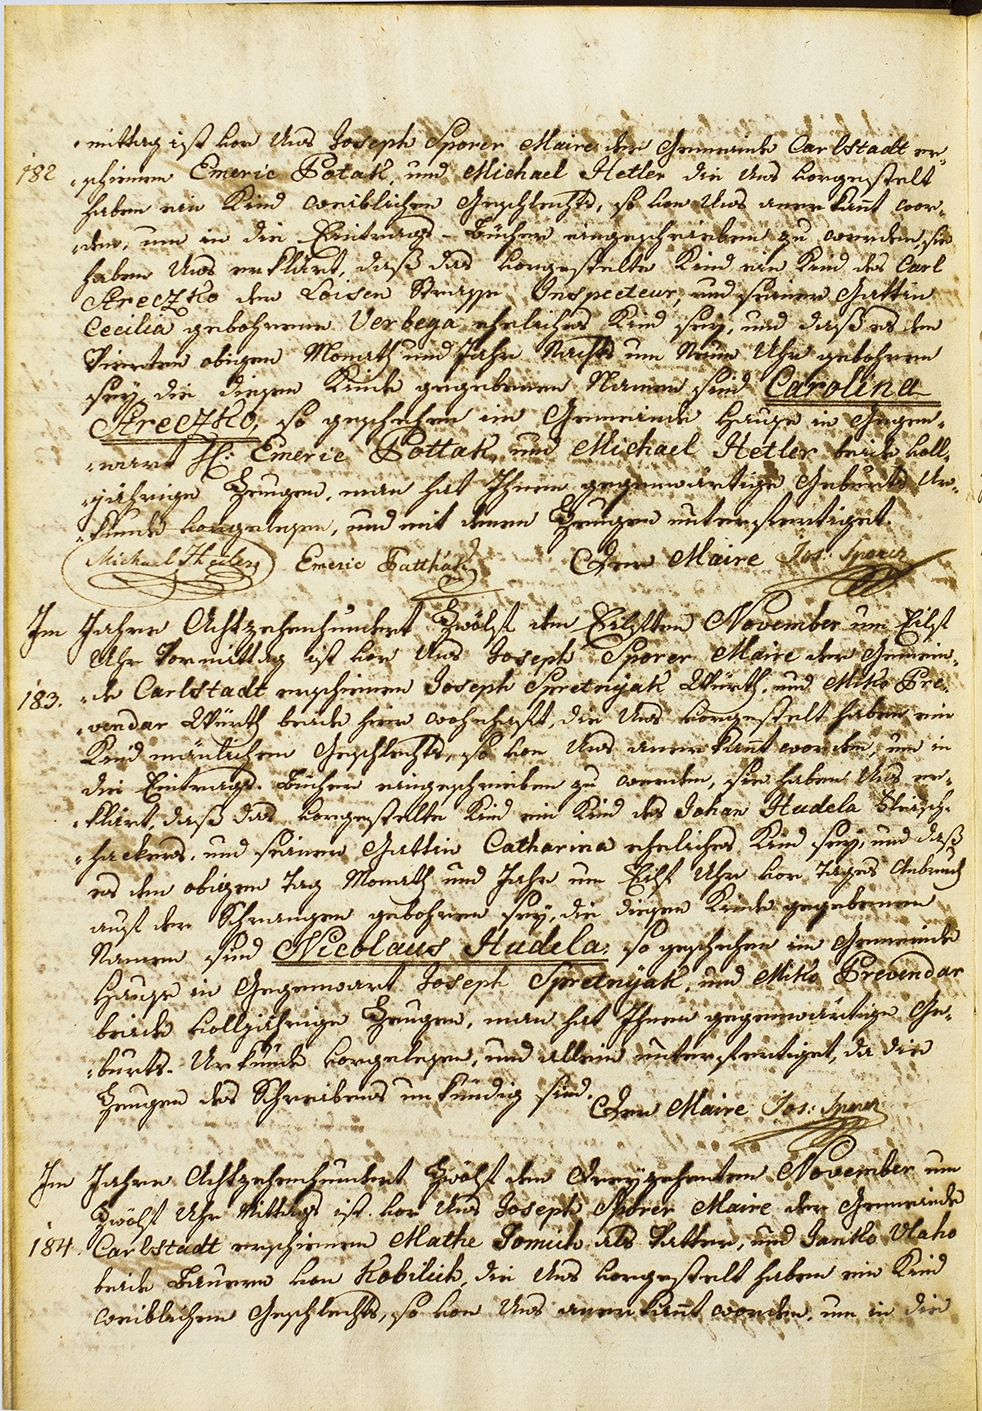 mittag ist vor Uns Joseph Sporer Maire der Gemeinde Carlstadt er-
182 schienen Emeric Potak und Michael Hetler die Uns vorgestelt
haben ein Kind weiblichen Geschlechts, so von Uns anerkañt wor-
den, um in die Eintrags-Bücher eingeschrieben zu werden, sie
haben Uns erklärt, daß das vorgestelte Kind ein Kind des Carl
Streczko der Loisen Strasse Inspecteur, und seiner Gattin
Cecilia gebohrene Verbega eheliches Kind sey, und daß es den
Vierten obigen Monath und Jahr Nachts um Neun Uhr gebohren
sey, die diesem Kinde gegebenen Namen sind Carolina
Streczko, so geschehen im Gemeinde Hause in Gegen-
wart H: Emeric Pottak, und Michael Hetler beide voll-
jährige Zeugen, man hat Ihnen gegenwärtige Geburts Ur-
kunde vorgelesen, und mit denen Zeugen unterfertiget.
Michael Emeric Patthak Der Maire Jos: Sporer
Im Jahre Achtzehenhundert Zwölf den Eilften November um Eilf
Uhr Vormittag ist vor Uns Joseph Sporer Maire der Gemein-
183. de Carlstadt erschienen Joseph Spretnÿak Würth, und Miko Pre-
vendar Würth beide hier wohnhaft, die Uns vorgestelt haben ein
Kind mänlichen Geschlechts, so von Uns anerkañt worden, um in
die Eintrags-Bücher eingeschrieben zu werden, sie haben Uns er-
klärt, daß das vorgestelte Kind ein Kind des Johan Hudela Fleisch-
hackers, und seiner Gattin Catharina eheliches Kind sey, und daß
es den obigen Tag Monath und Jahr um Eilf Uhr vor Tages Anbruch
auf der Schrangen gebohren sey, die diesem Kinde gegebenen
Namen sind Nicolaus Hudela, so geschehen im Gemeinde
Hause in Gegenwart Joseph Spretnÿak, und Miko Prevendar
beide volljährige Zeugen, man hat Ihnen gegenwärtige Ge-
burts-Urkunde vorgelesen, und allein unterfertiget, da die
Zeugen des Schreibens unkündig sind. Der Maire Jos: Sporer
Im Jahre Achtzehenhundert Zwölf den Dreyzehenten November um
Zwölf Uhr Mittags ist vor Uns Joseph Sporer Maire der Gemeinde
184. Carlstadt erschienen Mathe Tomich als Vatter, und Janko Vlaho
beide Bauern von Kobilich, die Uns vorgestelt haben ein Kind
weiblichen Geschlechts, so von Uns anerkañt worden, um in die